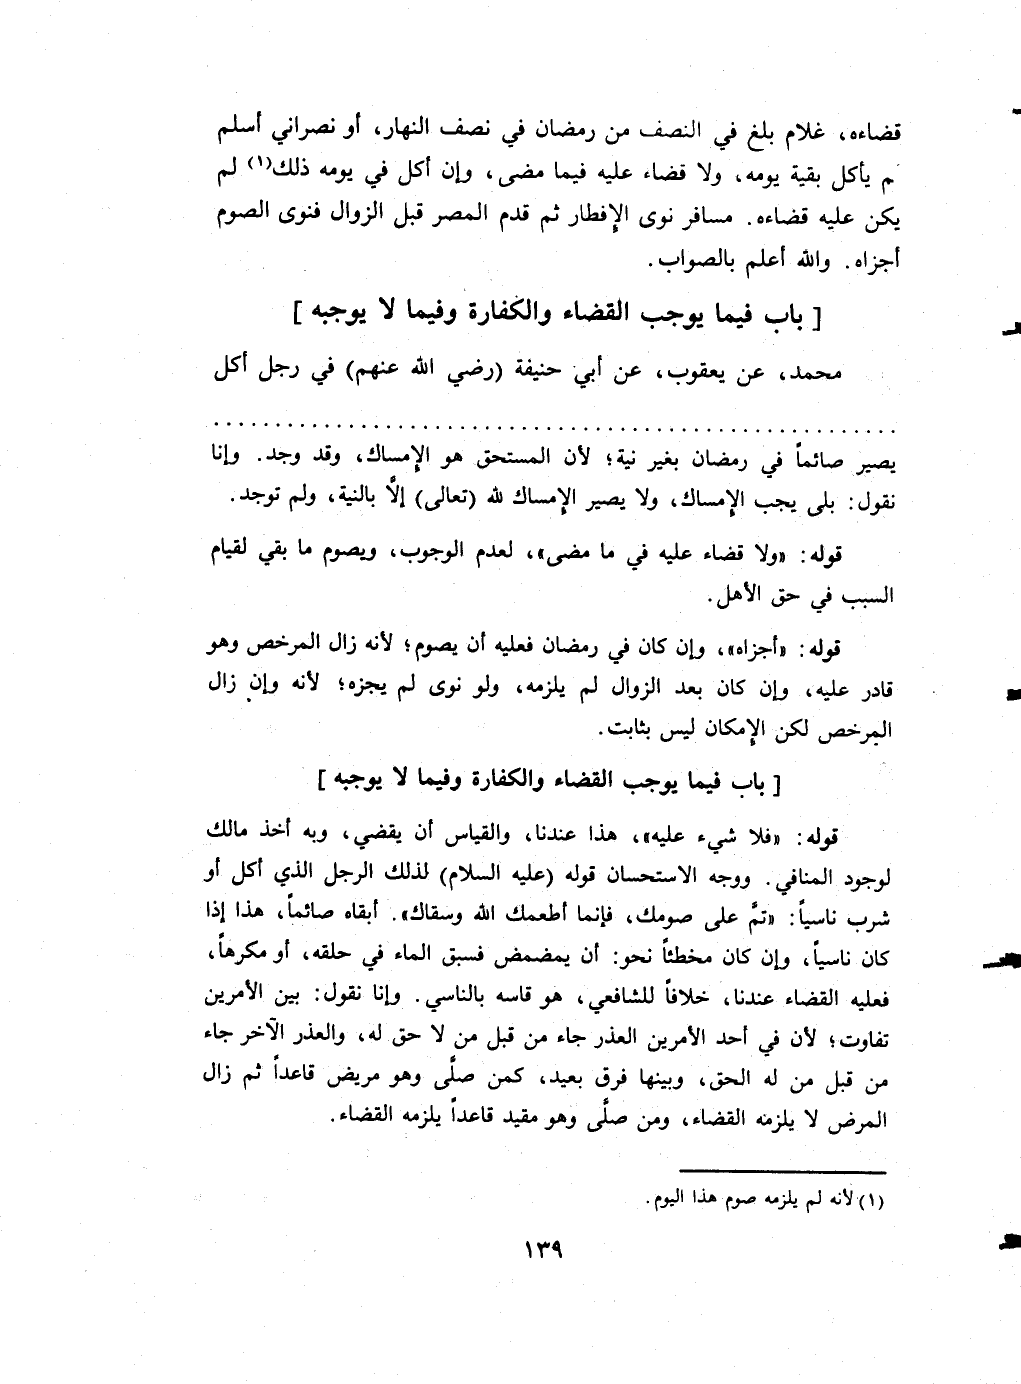 قضاءه، غلام بلغ في النصف من رمضان في نصف النهار، أو نصراني أسلم
م يأكل بقية يومه، ولا قضاء عليه فيما مضى، وإن أكل في يومه ذلك(١) لم
يكن عليه قضاءه. مسافر نوى الإفطار ثم قدم المصر قبل الزوال فنوى الصوم
أجزاه. والله أعلم بالصواب.
[ باب فيما يوجب القضاء والكفارة وفيما لا يوجبه ]
محمد، عن يعقوب، عن أبي حنيفة (رضي الله عنهم) في رجل أكل
يصير صائماً في رمضان بغير نية؛ لأن المستحق هو الإمساك، وقد وجد. وإنا
نقول: بلى يجب الإمساك، ولا يصير الإمساك لله (تعالى) إلَّا بالنية، ولم توجد.
قوله: «ولا قضاء عليه في ما مضى»، لعدم الوجوب، ويصوم ما بقي لقيام
السبب في حق الأهل.
قوله: «أجزاه»، وإن كان في رمضان فعليه أن يصوم؛ لأنه زال المرخص وهو
قادر عليه، وإن كان بعد الزوال لم يلزمه، ولو نوى لم يجزه؛ لأنه وإن زال
المرخص لكن الإمكان ليس بثابت.
[ باب فيما يوجب القضاء والكفارة وفيما لا يوجبه ]
قوله: «فلا شيء عليه»، هذا عندنا، والقياس أن يقضي، وبه أخذ مالك
لوجود المنافي. ووجه الاستحسان قوله (عليه السلام) لذلك الرجل الذي أكل أو
شرب ناسياً: «تمَّ على صومك، فإنما أطعمك الله وسقاك». أبقاه صائماً، هذا إذا
كان ناسياً، وإن كان مخطئاً نحو: أن يمضمض فسبق الماء في حلقه، أو مكرهاً،
فعليه القضاء عندنا، خلافاً للشافعي، هو قاسه بالناسي. وإنا نقول: بين الأمرين
تفاوت؛ لأن في أحد الأمرين العذر جاء من قبل من لا حق له، والعذر الآخر جاء
من قبل من له الحق، وبينها فرق بعيد، كمن صلَّى وهو مريض قاعداً ثم زال
المرض لا يلزمه القضاء، ومن صلَّى وهو مقيد قاعداً يلزمه القضاء.
(١) لأنه لم يلزمه صوم هذا اليوم.
١٣٩